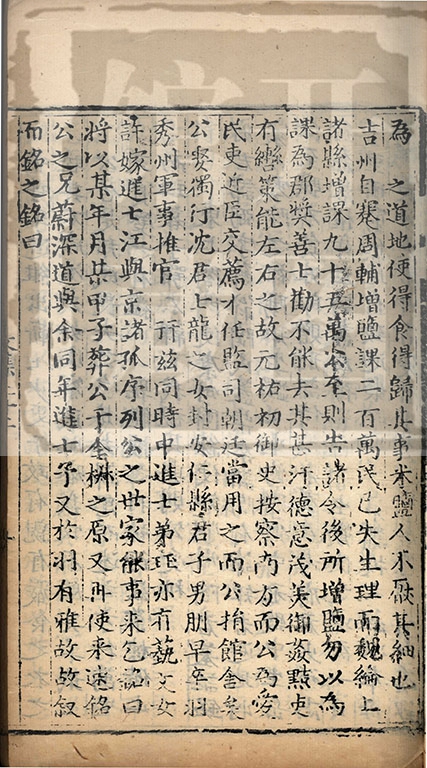 為 之道地使得食得歸其事米鹽人不厭其細也
吉州自蹇周輔增鹽課二百萬民已失生理而魏綸上
諸縣增課九十五萬公至則告諸令後所增鹽勿以為
課為郡獎善士勸不能去其甚汙德意茂美御姦黠吏
有轡策能左右之故元祐初御史按察而方而公為愛
民吏近臣交薦才任監司朝廷當用之而公捐館舍矣
公娶獨汀沈君上龍之女封安仁縣君子男朋早卒羽
秀州軍事推官 𤣥茲同時中進士第𤣥亦有藝文女
許嫁進士江與京諸孤序列公之世家能事來乞銘曰
將以某年月某甲子葬公于金 之原又再使來速銘
公之兄蔚深道與余同年進士予又於羽有雅故故叙
而銘之銘曰